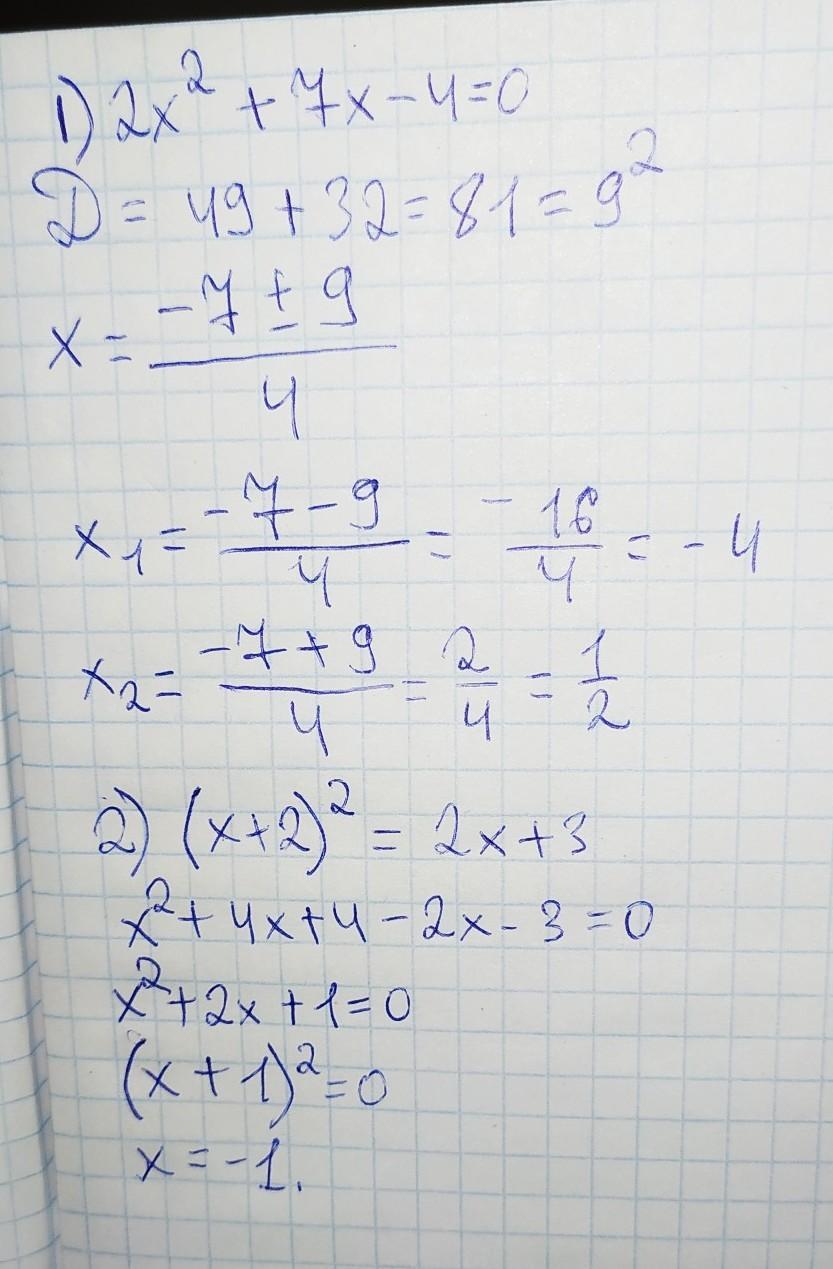 1) 2x² + 7x - 4 = 0
D = 49 + 32 = 81 = 9²
x = (-7 ± 9)/4
x₁ = (-7 - 9)/4 = -16/4 = -4
x₂ = (-7 + 9)/4 = 2/4 = 1/2
2) (x+2)² = 2x + 3
x² + 4x + 4 - 2x - 3 = 0
x² + 2x + 1 = 0
(x + 1)² = 0
x = -1.